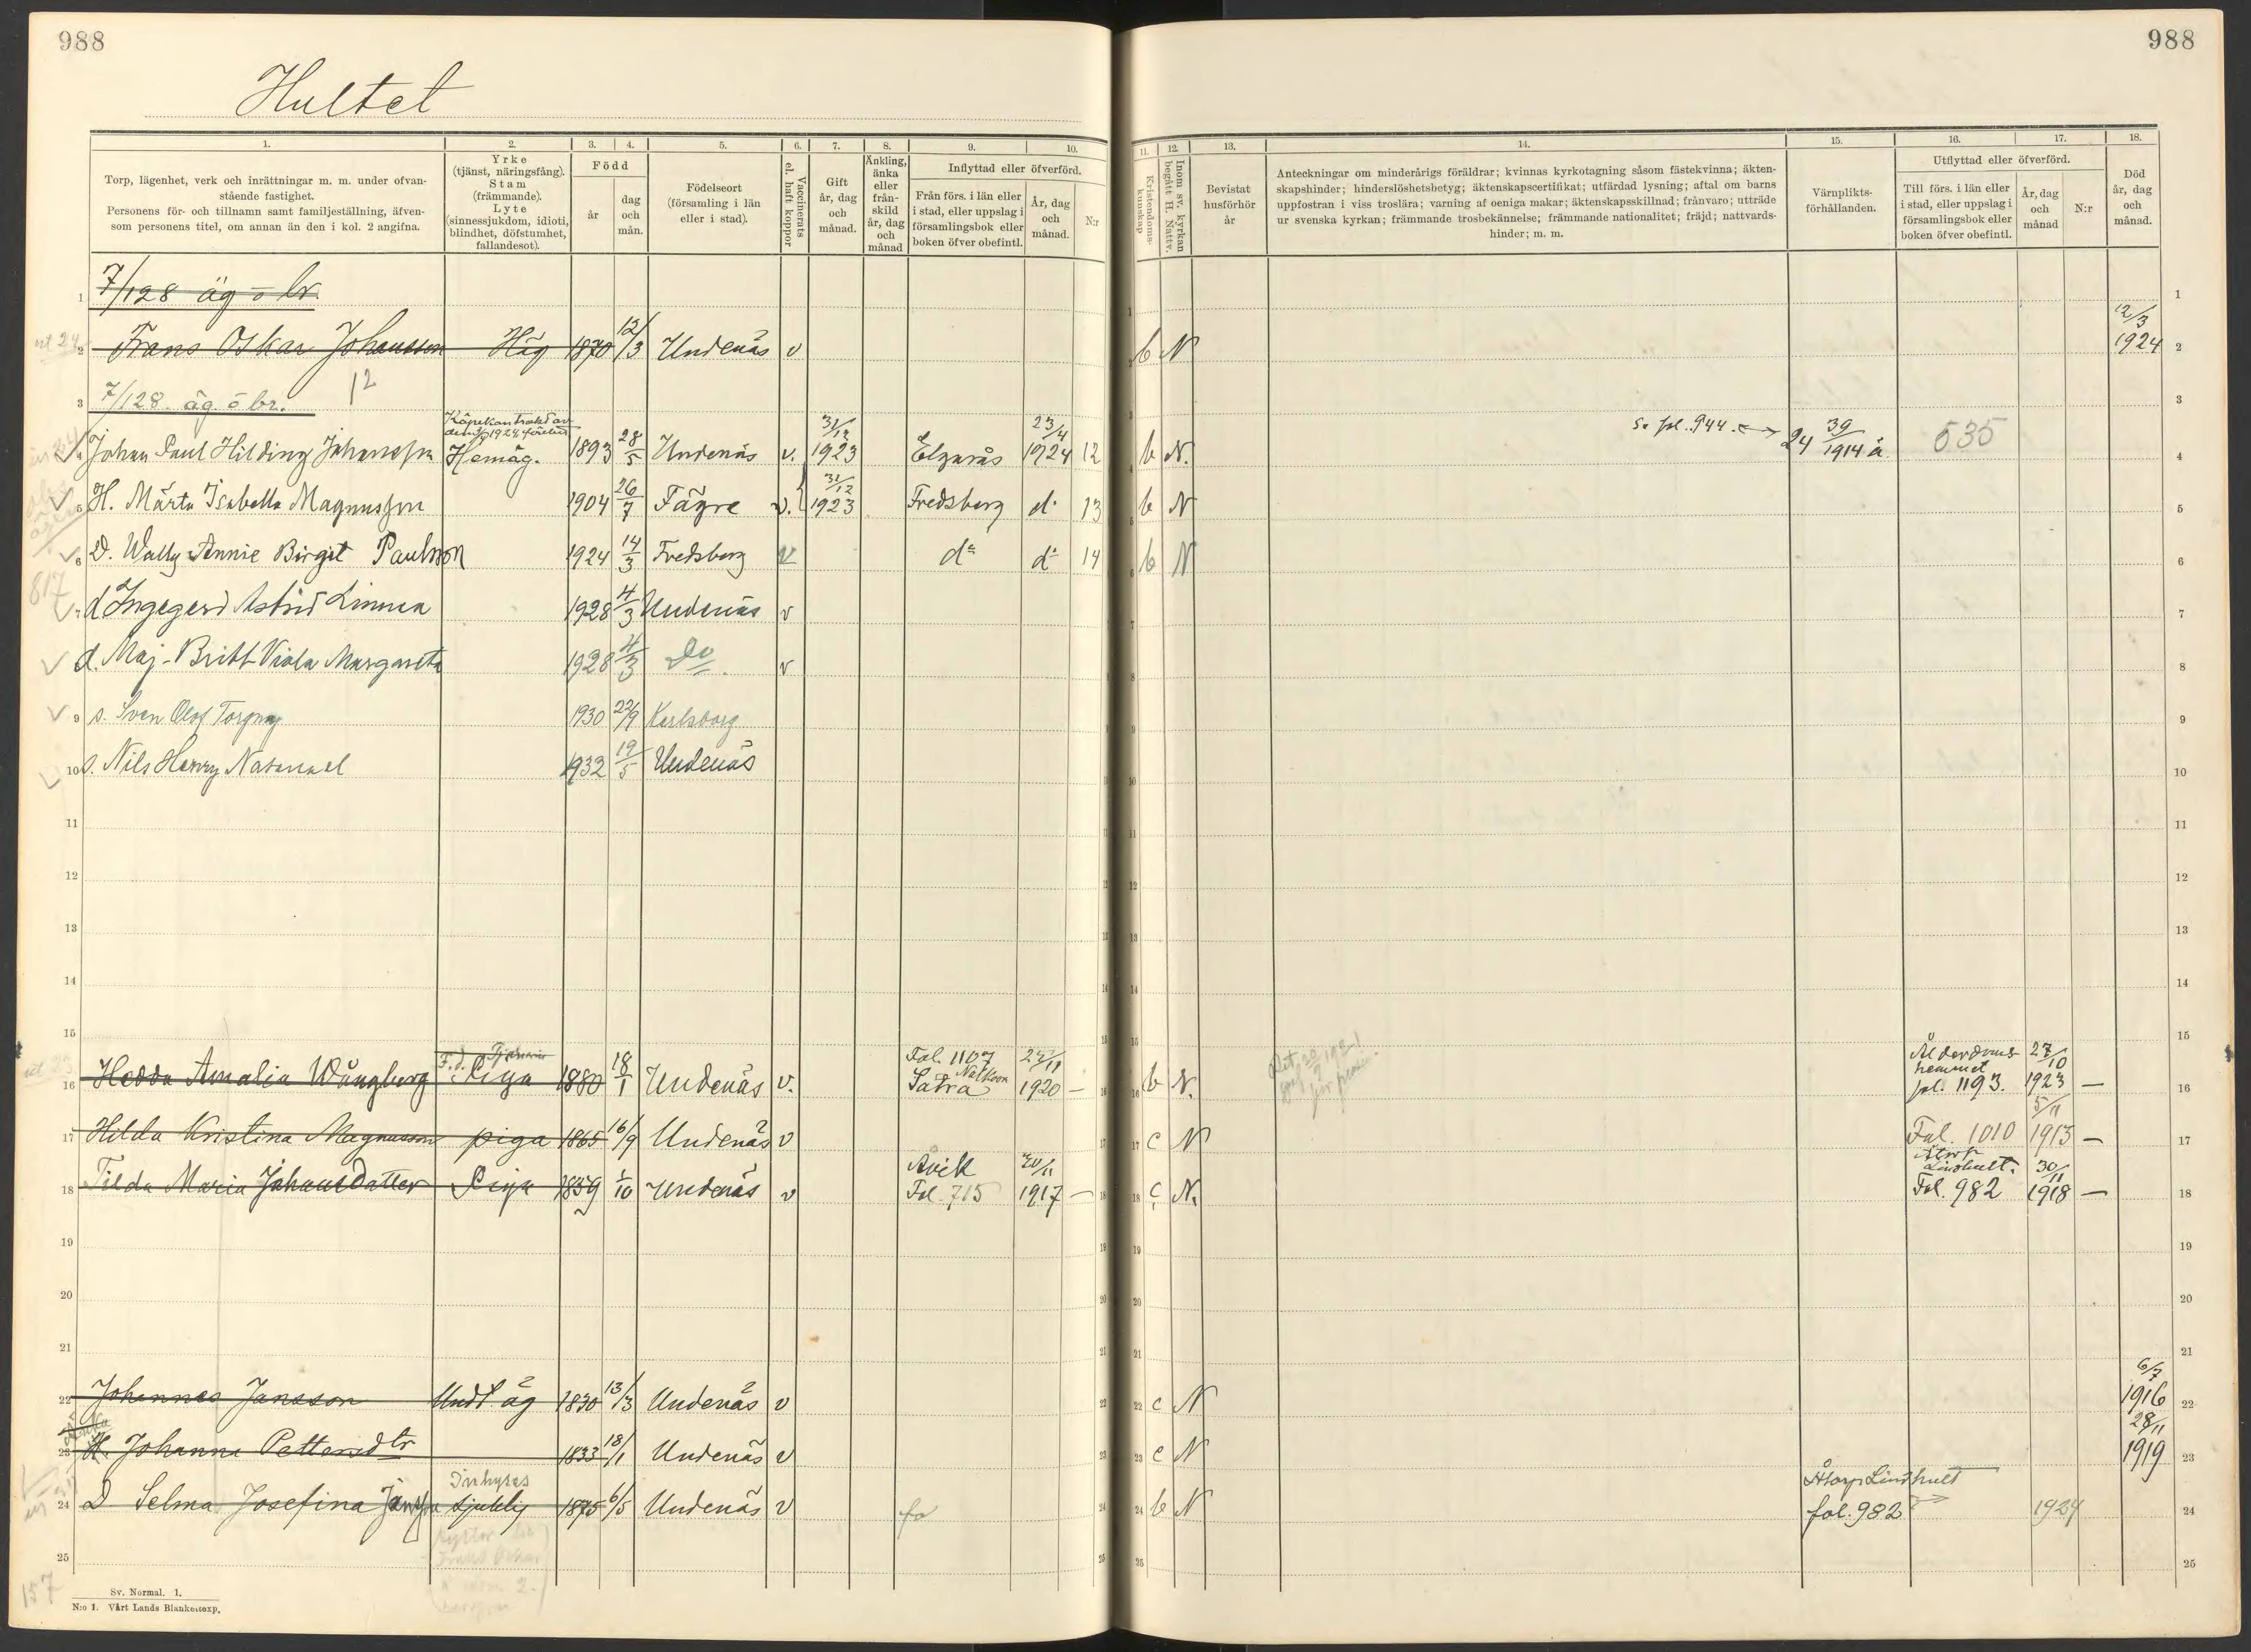 988
988
Hultet
1.
Torp, lägenhet, verk och inrättningar m. m. under ofvan-
stående fastighet.
Personens för- och tillnamn samt familjeställning, äfven-
som personens titel, om annan än den i kol. 2 angifna.
2.
Yrke
(tjänst, näringsfång).
Stam
(främmande).
Lyte
(sinnessjukdom, idioti,
blindhet, döfstumhet,
fallandesot).
3. 4.
Född
år
dag
och
mån.
5.
Födelseort
(församling i län
eller i stad).
6.
Vaccinerats
el. haft koppor
7.
Gift
år, dag
och
månad.
8.
Änkling,
änka
eller
från-
skild
år, dag
och
månad
9. 10.
Inflyttad eller öfverförd.
Från förs. i län eller
i stad, eller uppslag i
församlingsbok eller
boken öfver obefintl.
År, dag
och
månad.
N:r
11.
Kristendoms-
kunskap
12.
Inom sv. kyrkan
begått H. Nattv.
13.
Bevistat
husförhör
år
14.
Anteckningar om minderårigs föräldrar; kvinnas kyrkotagning såsom fästekvinna; äkten-
skapshinder; hinderslöshetsbetyg; äktenskapscertifikat; utfärdad lysning; aftal om barns
uppfostran i viss troslära; varning af oeniga makar; äktenskapsskillnad; frånvaro; utträde
ur svenska kyrkan; främmande trosbekännelse; främmande nationalitet; fräjd; nattvards-
hinder; m. m.
15.
Värnplikts-
förhållanden.
16. 17.
Utflyttad eller öfverförd.
Till förs. i län eller
i stad, eller uppslag i
församlingsbok eller
boken öfver obefintl.
År, dag
och
månad
N:r
18.
Död
år, dag
och
månad.
1 7/128 äg o br. 1
2 Frans Oskar Johansson Häg 1870 12/3 Undenäs v b N 12/3 1924 2
12
3 7/128 äg. o br. 3
Köpekontrakt av
Johan Paul Hilding Johansson Hemäg. 1893 28/5 Undenäs v. 31/12 1923 Elgarås 23/4 1924 12 b N. Se fol. 944. 24 39/1914 å 535 4
5 H. Märta Isabella Magnusson 1904 26/7 Fägre v. 31/12 1923 Fredsberg d:o 13 b N 5
6 D. Wally Annie Birgit Paulsson 1924 14/3 Fredsberg v d:o d:o 14 b N 6
817
7 d Ingegerd Astrid Linnea 1928 4/3 Undenäs v 7
d. Maj-Britt Viola Margareta 1928 4/3 Do v 8
9 s. Sven Olof Torgny 1930 22/9 Karlsborg 9
10 s. Nils Henry Natanael 1932 19/5 Undenäs 10
11 11
12 12
13 13
14 14
15 15
16 Hedda Amalia Wångberg F. d. Piga 1880 18/1 Undenäs v. Fol. 1107 Sätra 1920 — b N. Ålderdoms-
hemmet
fol. 1193. 27/10 1923 — 16
17 Hilda Kristina Magnusson piga 1865 16/9 Undenäs v c N Fol. 1010 5/11 1913 — 17
18 Tilda Maria Johansdotter Piga 1859 1/10 Undenäs v Fol. 715 1917 — c N. Lindhult. Fol. 982 30/11 1918 — 18
19 19
20 20
21 21
22 Johannes Jansson Undt äg 1830 13/3 Undenäs v c N 6/7 1916 22
Änka
23 H. Johanna Pettersdtr 1833 18/1 Undenäs v c N 28/11 1919 23
24 D Selma Josefina Jansson Inhyses sjuklig 1875 6/5 Undenäs v b N Åtorp Lindhult
fol. 982 1924 24
25 25
157
Sv. Normal. 1.
N:o 1. Vårt Lands Blankettexp.